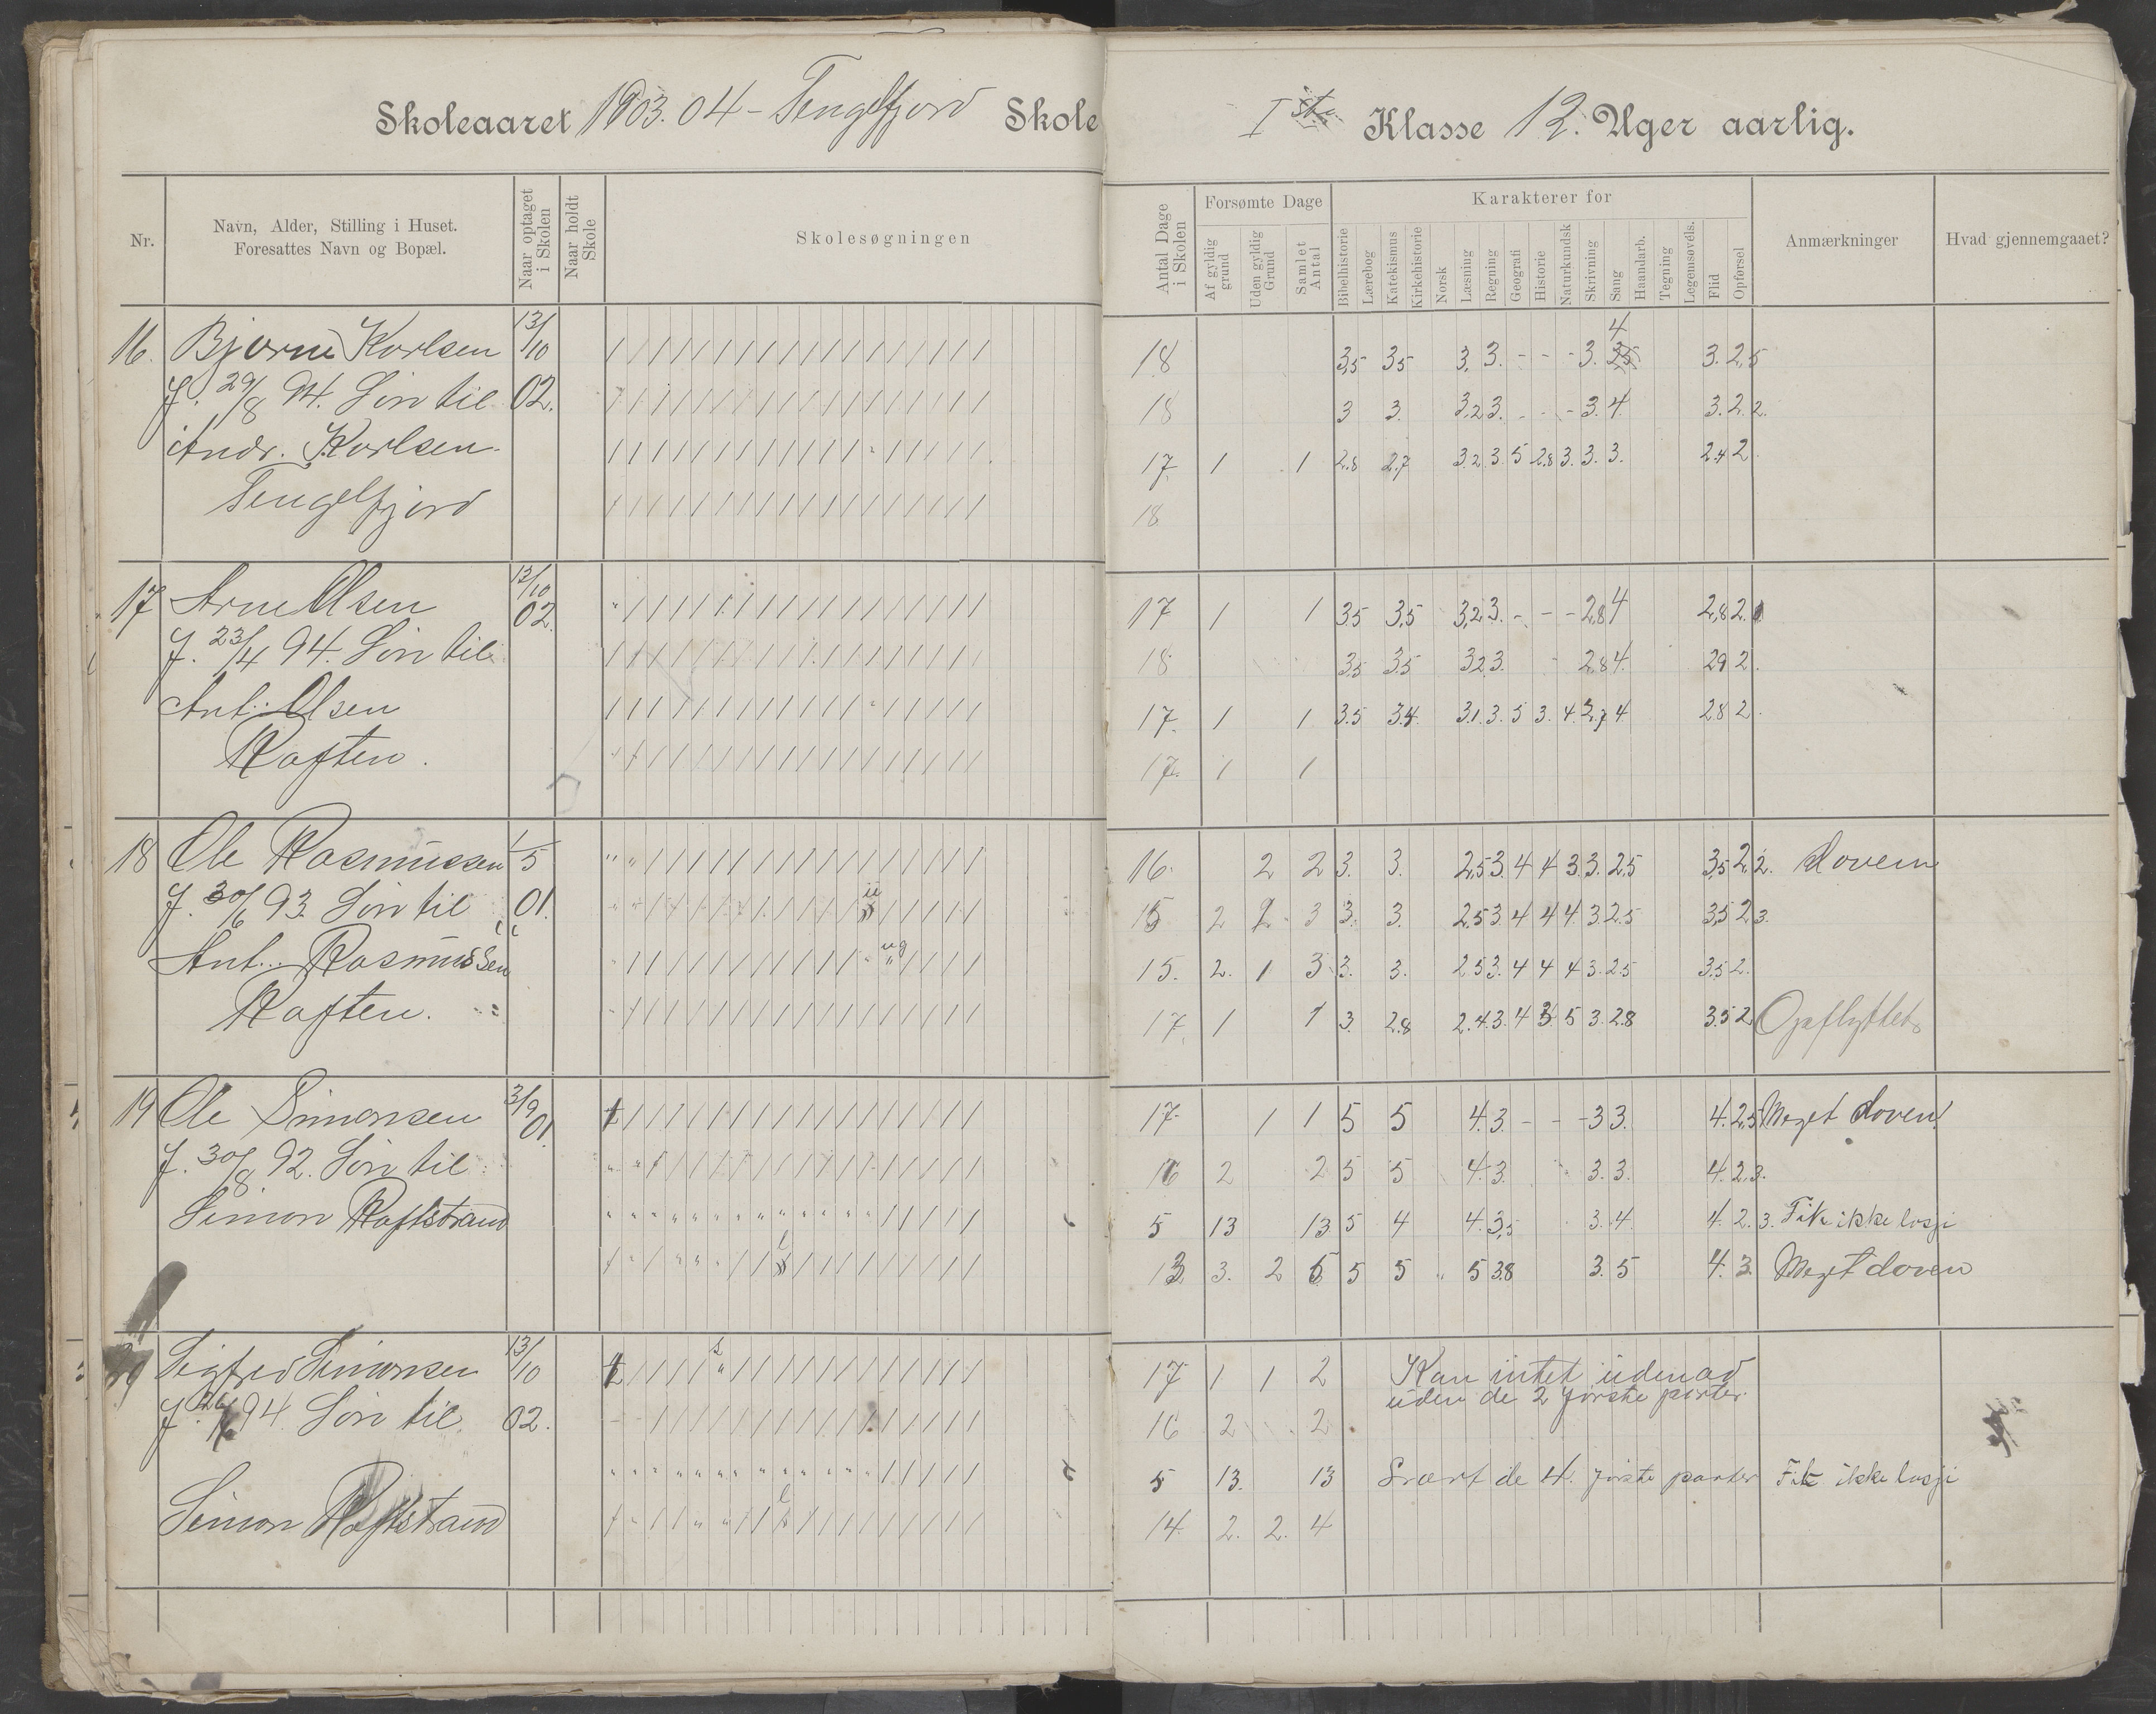 Skoleaaret 1903.04 - Tengelfjord Skole Iste Klasse 12. Uger aarlig.
Nr. Navn, Alder, Stilling i Huset. Foresattes Navn og Bopæl. Naar optaget i Skolen Naar holdt Skole Skolesøgningen Antal Dage i Skolen Forsømte Dage Af gyldig grund Uden gyldig Grund Samlet Antal Karakterer for Bibelhistorie Lærebog Katekismus Kirkehistorie Norsk Læsning Regning Geografi Historie Naturkundsk Skrivning Sang Haandarb. Tegning Legemsøvels. Flid Opførsel Anmærkninger Hvad gjennemgaaet?
16. Bjarne Karlsen 13/10 18 3,5 3,5 3. 3. - - - 3. 4 3. 2,5
f. 29/8 94. Søn til 02. 18 3 3. 3,2 3. - - - 3. 4 3. 2.2.
Andr. Karlsen 17. 1 1 2.8 2.7 3.2 3 5 2.8 3. 3. 3. 2.4 2
Tengelfjord 18
17 Arne Olsen 13/10 02. 17 1 1 3.5 3,5 3,2 3. - - - 2,8 4 2,8 2.
f. 23/4 94. Søn til 18 3,5 3.5 3.2 3. - 2.8 4. 2.9 2.
Ant. Olsen 17. 1 1 3.5 3.4 3.1 3. 5 3. 4. 2,7 4 2.8 2.
Raften. 17. 1 1
18 Ole Rasmussen 1/5 16. 2 2 3. 3. 2,5 3. 4 4 3 3. 2,5 3,5 2,2. doven
f. 30/6 93. Søn til 01. 15 2 2 3 3. 3. 2.5 3 4 4 4 3 2.5 3,5 2,3.
Ant. Rasmussen 15. 2. 1 3 3. 3. 2.5 3. 4 4 4 3. 2.5 3.5 2.
Raften. 17. 1 1 3. 2.8 2.4 3. 4 3 5 3. 2.8 3.5 2 Opflyttet
19 Ole Simonsen 3/9 01. 17. 1 1 5 5 4. 3. - - - 3 3. 4. 2,5 Meget doven!
f. 30/8 92. Søn til 16 2 2 5 5 4. 3. 3. 3. 4. 2,3.
Simon Raftstrand 5 13 13 5 4 4. 3,5 3. 4. 4. 2.3. Fik ikke losji
13. 3. 2 5 5 5 5 3.8 3. 5 4. 3. Meget doven
Sigfred Simonsen 13/10 17 1 1 2 Kan intet udenad
uden de 2 første parter.
94 Søn til 02. 16 2 2
5 13. 13 Svært de 4. første parter Fik ikke losji
Simon Raftstrand 14. 2. 2. 4